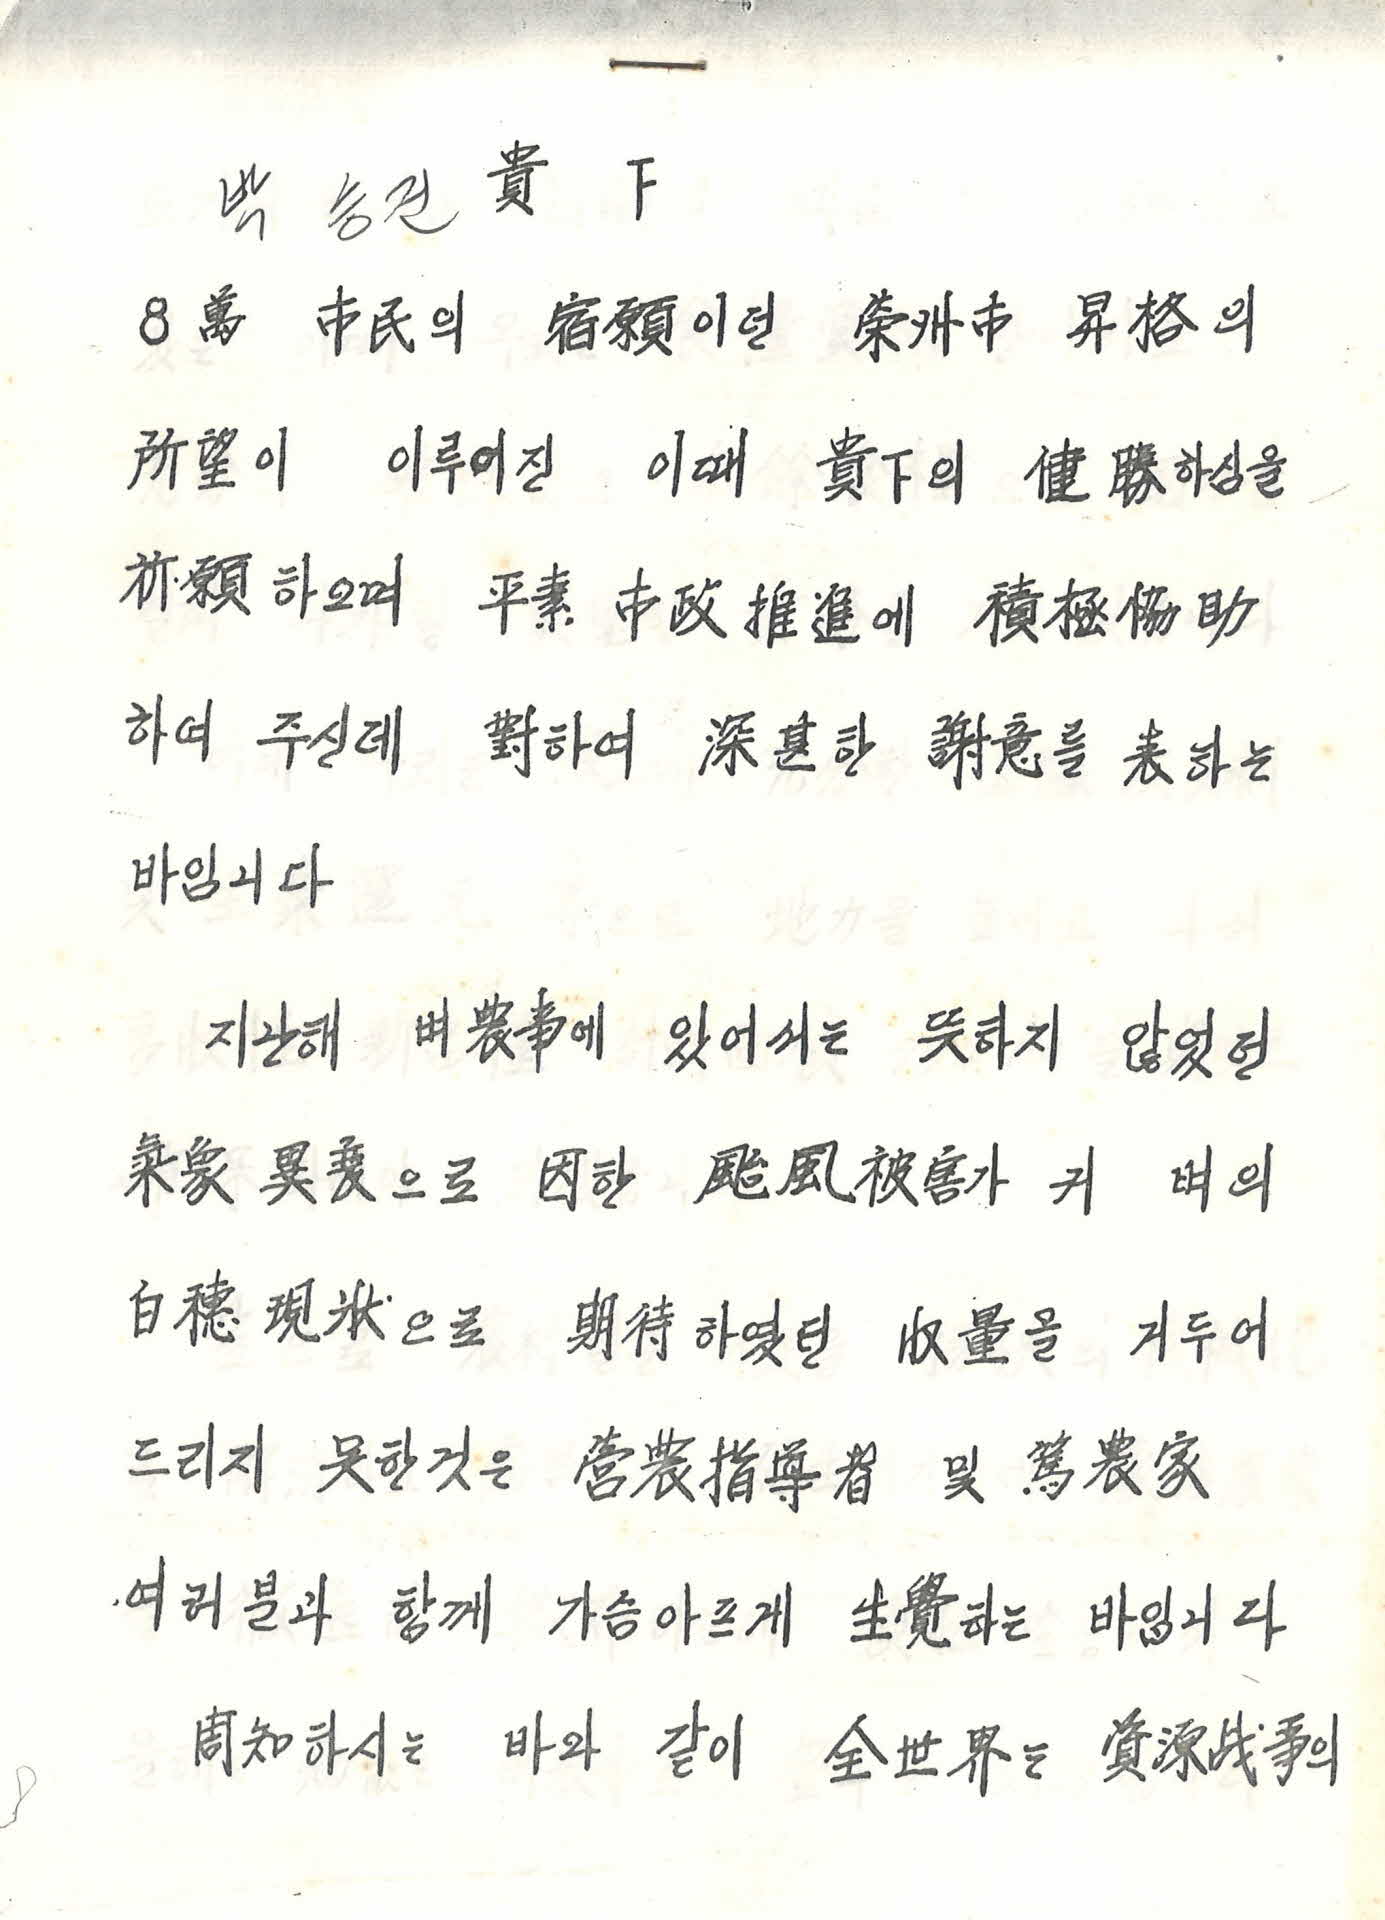 박 승건 貴 下
8萬 市民의 宿願이던 榮州市 昇格의
所望이 이루어진 이때 貴下의 健勝하심을
祈願하오며 平素 市政推進에 積極協助
하여 주신데 對하여 深甚한 謝意를 表하는
바입니다
지난해 벼農事에 있어서는 뜻하지 않었던
氣象異変으로 因한 颱風被害가 커 벼의
白穗現狀으로 期待하였던 收量을 거두어
드리지 못한것은 营農指導者 및 篤農家
여러분과 함께 가슴아프게 生覺하는 바입니다
周知하시는 바와 같이 全世界는 資源战爭의